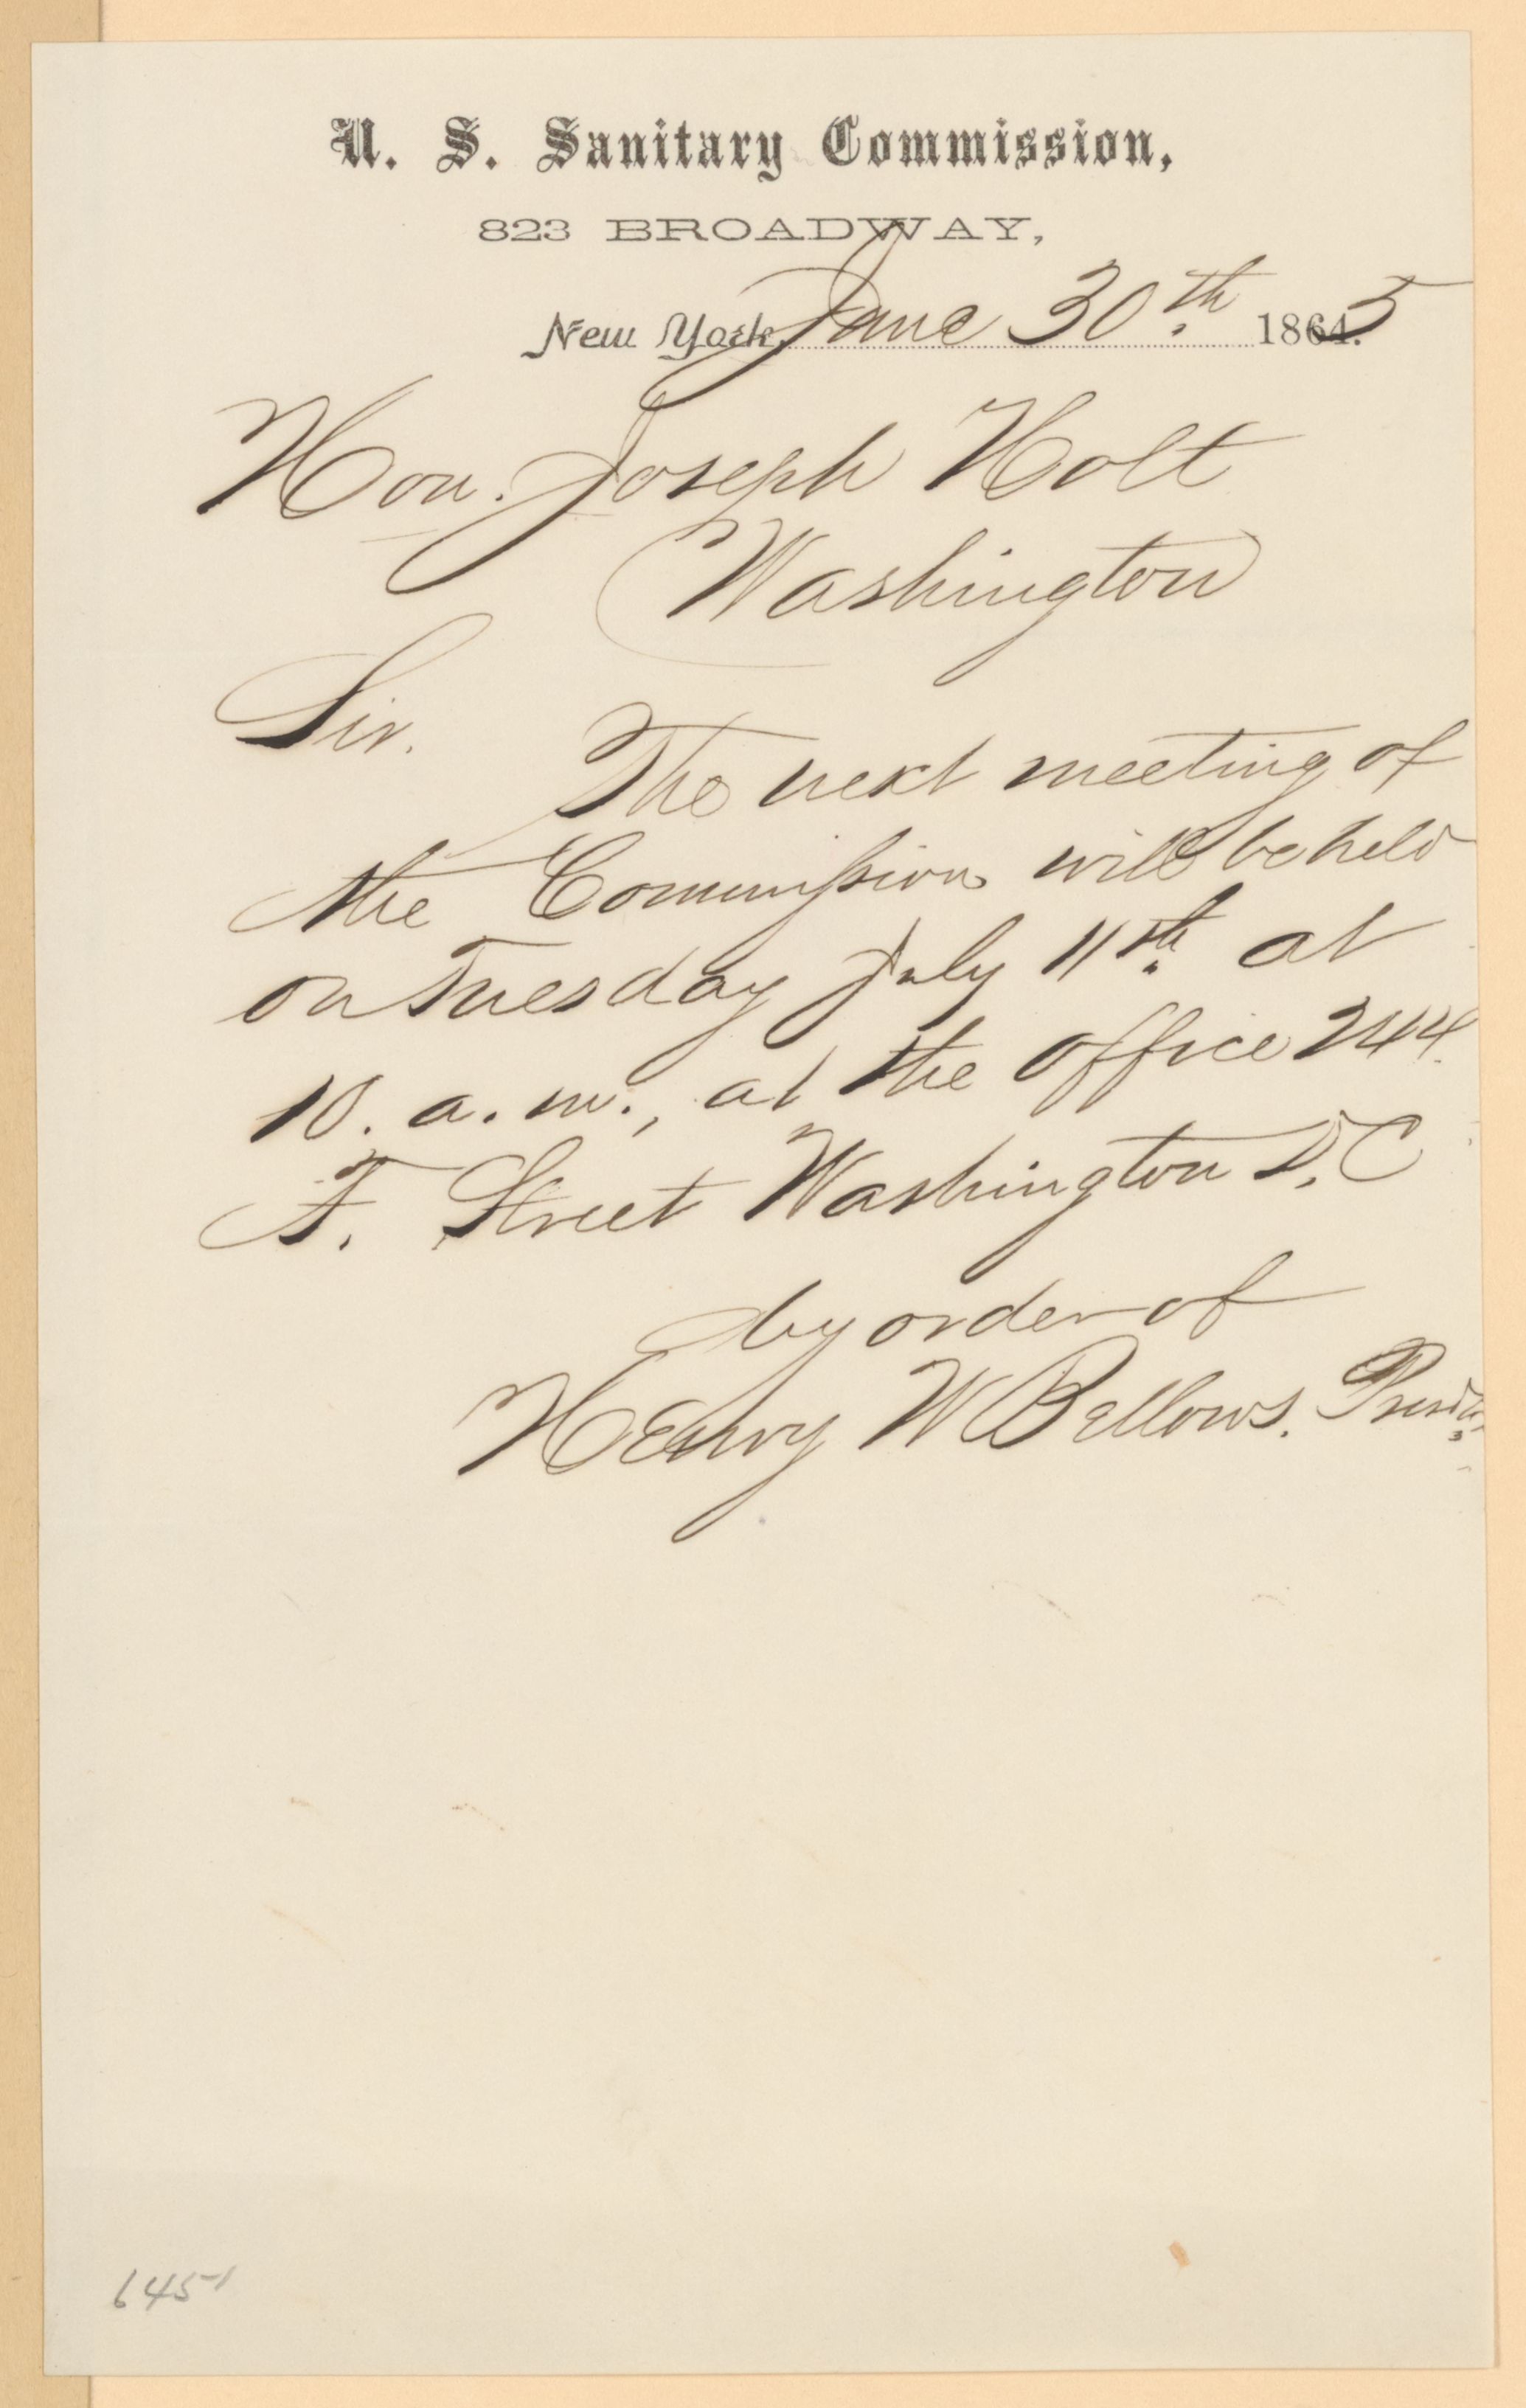 U. S. Sanitary Commission,
823 BROADWAY,
New York, June 30th. 1864. 5
Hon. Joseph Holt
Washington
Sir.
The next meeting of
the Commission will be held
on Tuesday July 11th. at
10. a. m., at the office 244
F. Street Washington D.C
by order of
Henry W Bellows. Presidt.
6451